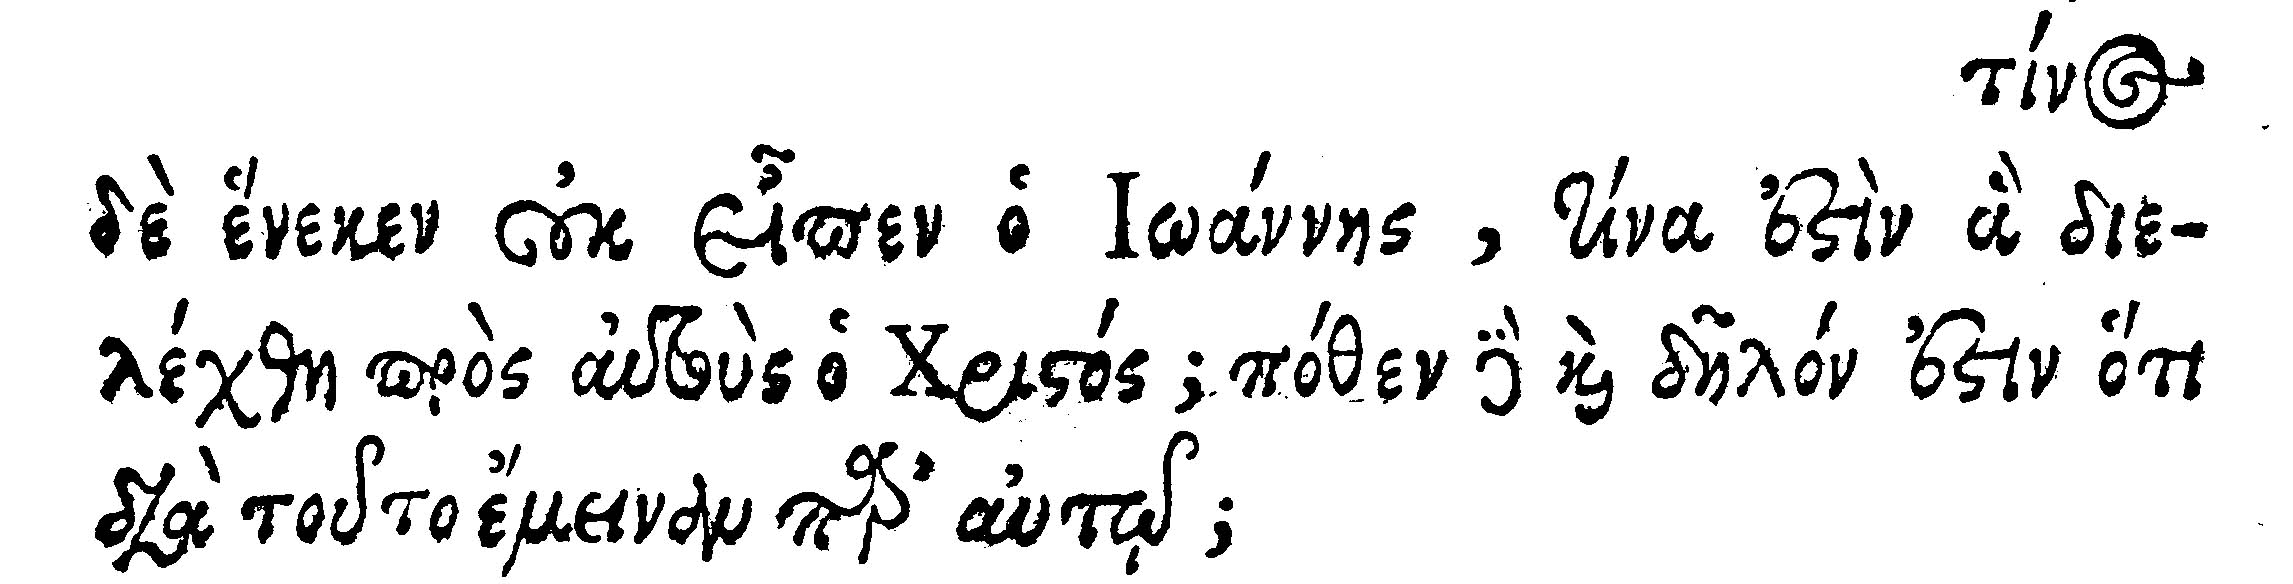 τίνος
δὲ ἕνεκεν οὐκ εἶπεν ὁ Ιωάννης, τίνα ἐστὶν ἃ διε-
λέχθη πρὸς αὐτοὺς ὁ Χριστός; πόθεν δὲ καὶ δῆλόν ἐστιν ὅτι
διὰ τοῦτο ἔμειναν παρ' αὐτῷ;